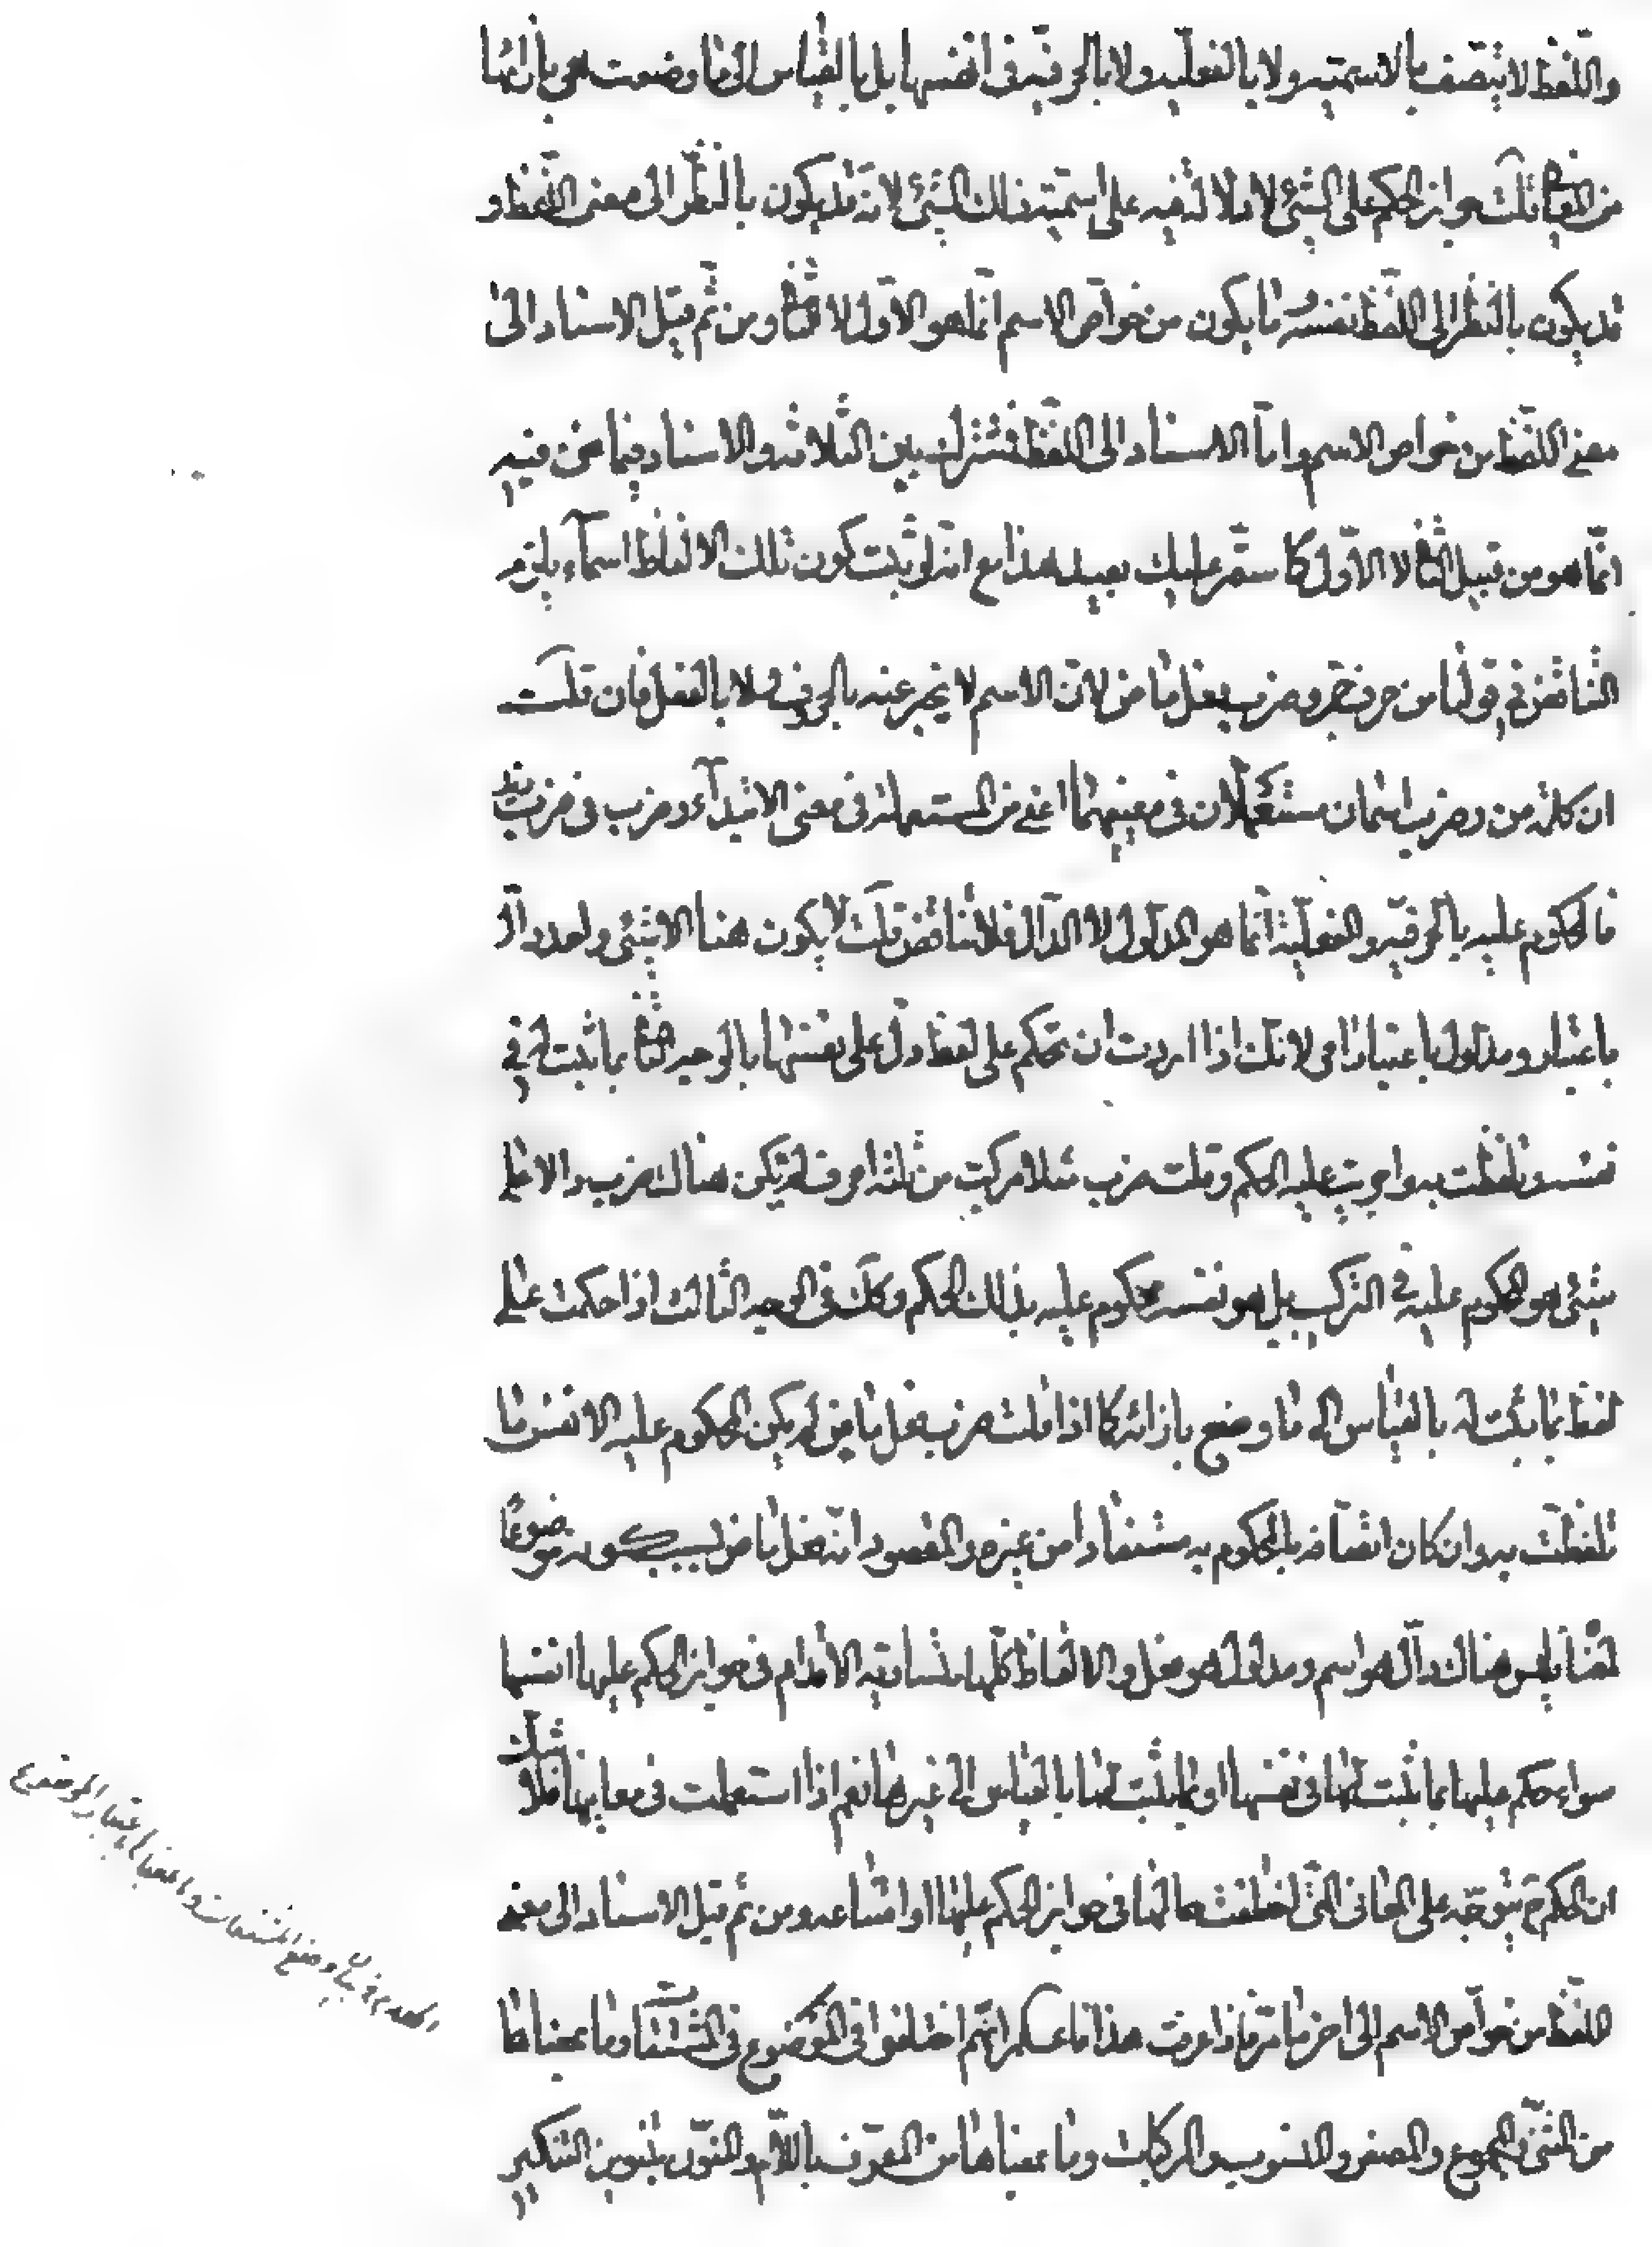 واللفظ لا يتصف بالاسمية ولا بالفعلية ولا بالحرفية في انفسها بل بالقياس الى ما وضعت هي بازائها
من المعاني تلك جواز الحكم على الشئ لا دلالة فيه على اسمية ذلك الشئ لانه قد يكون بالنظر الى معنى اللفظ و
قد يكون بالنظر الى اللفظ نفسه وما يكون من خواص الاسم انما هو الاول لا الثاني ومن ثم قيل الاسناد الى
معنى اللفظ من خواص الاسم واما الاسناد الى اللفظ فمشترك بين الثلاثة والاسناد فيما نحن فيه
انما هو من قبيل الثاني لا الاول كما ستقر عليك بعيد هذا مع انه لو ثبت كون تلك الالفاظ اسماء يلزم
التناقض في قولنا من حرف جر وضرب فعل ماض لان الاسم لا يخبر عنه بالحرف ولا بالفعل فان قلت
ان كلمة من وضرب اسمان مستعملان في معنييهما اعني من المستعملة في معنى الابتداء وضرب في ضرب زيد
فالمحكوم عليه بالحرفية والفعلية انما هو المدلول لا الدال فلا تناقض قلت لا يكون هنا الا شئ واحد دال
باعتبار ومدلول باعتبار اخر لانك اذا اردت ان تحكم على لفظ دل على نفسها بالوجه الثاني بما ثبت له في
نفسه وتلفظت به واجريت عليه الحكم وقلت ضرب مثلا مركب من ثلثة احرف لم يكن هناك ضرب دالا على
شئ هو المحكوم عليه في التركيب بل هو نفسه محكوم عليه بذلك الحكم وكذلك في الوجه الثالث اذا حكمت على
لفظ بما ثبت له بالقياس الى ما وضع بازائه كما اذا قلت ضرب فعل ماض لم يكن المحكوم عليه الا نفس ما
تلفظت به وان كان اتصافه بالمحكوم به مستفادا من غيره والمقصود انه فعل ماض بسبب كونه موضوعا
لمعناه ليس هناك دال هو اسم ومدلول هو فعل والالفاظ كلها متساوية الاقدام في جواز الحكم عليها انفسها
سواء حكم عليها بما ثبت لها في نفسها او بما يثبت لها بالقياس الى غيرها نعم اذا استعملت في معانيها فلا شك
ان الحكم ح يتوجه على المعاني التي اختلفت حالها في جواز الحكم عليها او امتناعه ومن ثم قيل الاسناد الى معنى
اللفظ من خواص الاسم الى اخر ما مر فاذا عرفت هذا فاعلم انهم اختلفوا في الموضوع في المشتقات وما بمعناها
من المثنى والمجموع والمصغر والمنسوب والمركبات وما بمعناها من المعرف باللام والمنون بتنوين التنكير
في بيان وضع المشتقات وما بمعناها باعتبار الموضوع